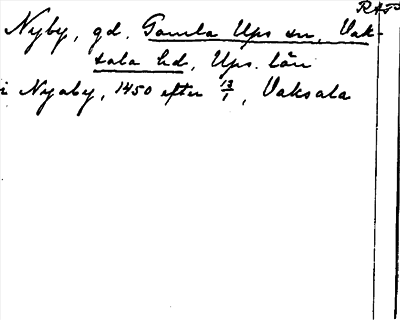 Nyby, gd. Gamla Ups sn, Vak-
sala hd, Ups. län
i Nyaby, 1450 efter 13/1, Vaksala